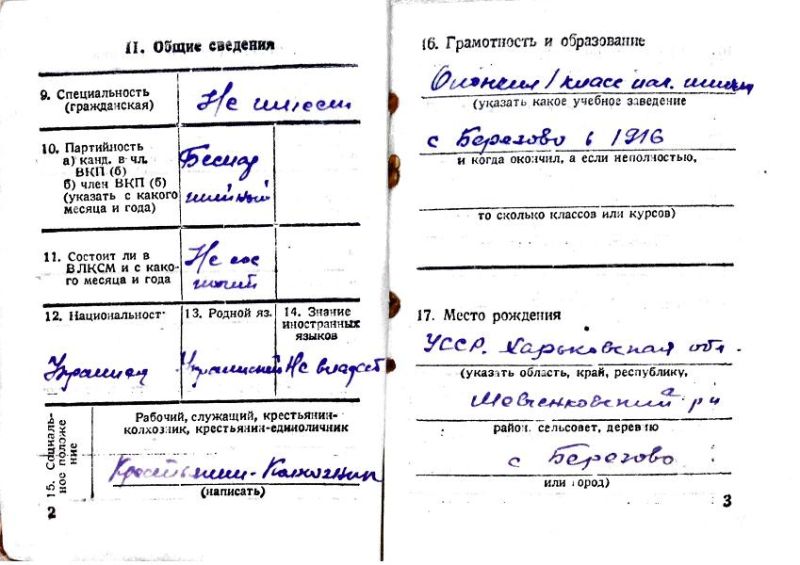 II. Общие сведения
9. Специальность
(гражданская)
Не имеет
10. Партийность
а) канд. в чл.
ВКП (б)
б) член ВКП (б)
(указать с какого
месяца и года)
Беспар
тийный
11. Состоит ли в
ВЛКСМ и с како-
го месяца и года
Не сос
тоит
12. Национальност
Украинец
13. Родной яз.
Украинский
14. Знание
иностранных
языков
Не владеет
15. Социаль-
ное положе
ние
Рабочий, служащий, крестьянин-
колхозник, крестьянин-единоличник
Крестьянин-Колхозник
(написать)
2
16. Грамотность и образование
Окончил 1 класс нач. школы
(указать какое учебное заведение
с Березово в 1916
и когда окончил, а если неполностью,
то сколько классов или курсов)
17. Место рождения
УССР. Харьковская обл.
(указать область, край, республику,
Шевченковский р-н
район. сельсовет, деревню
с Березово
или город)
3